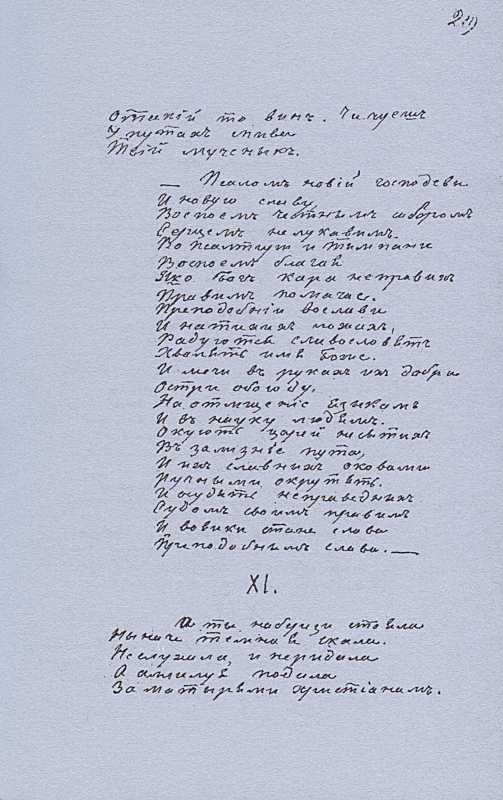 Отакій то винъ. Чи чуешъ
У путахъ лива
Твій мученыкъ.
— Псаломъ новій господеви
И новую славу
Воспоемъ честнымъ соборомъ
Серцемъ нелукавимъ.
Во псалтиръ и тимпани
Воспоемъ благая
Яко Богъ кара неправихъ
Правимъ помагае.
Преподобніи во слави
И на тихихъ ложахъ,
Радуются славословять
Хвалять имя Боже.
И мечи въ рукахъ ихъ добри
Остри обоюду.
На отмщеніе языкамъ
И въ науку людямъ.
Окують царей неситихъ
Въ зализніе пута,
И ихъ славнихъ оковами
Ручными окрутять.
И осудять неправеднихъ
Судомъ своимъ правимъ
И вовики стане слава
Преподобнимъ слава. —
XI.
А ты на бузи стояла
Ныначе темная скала.
Не слухала, и не ридала
А аллилуя подала
За матырями христіанамъ.